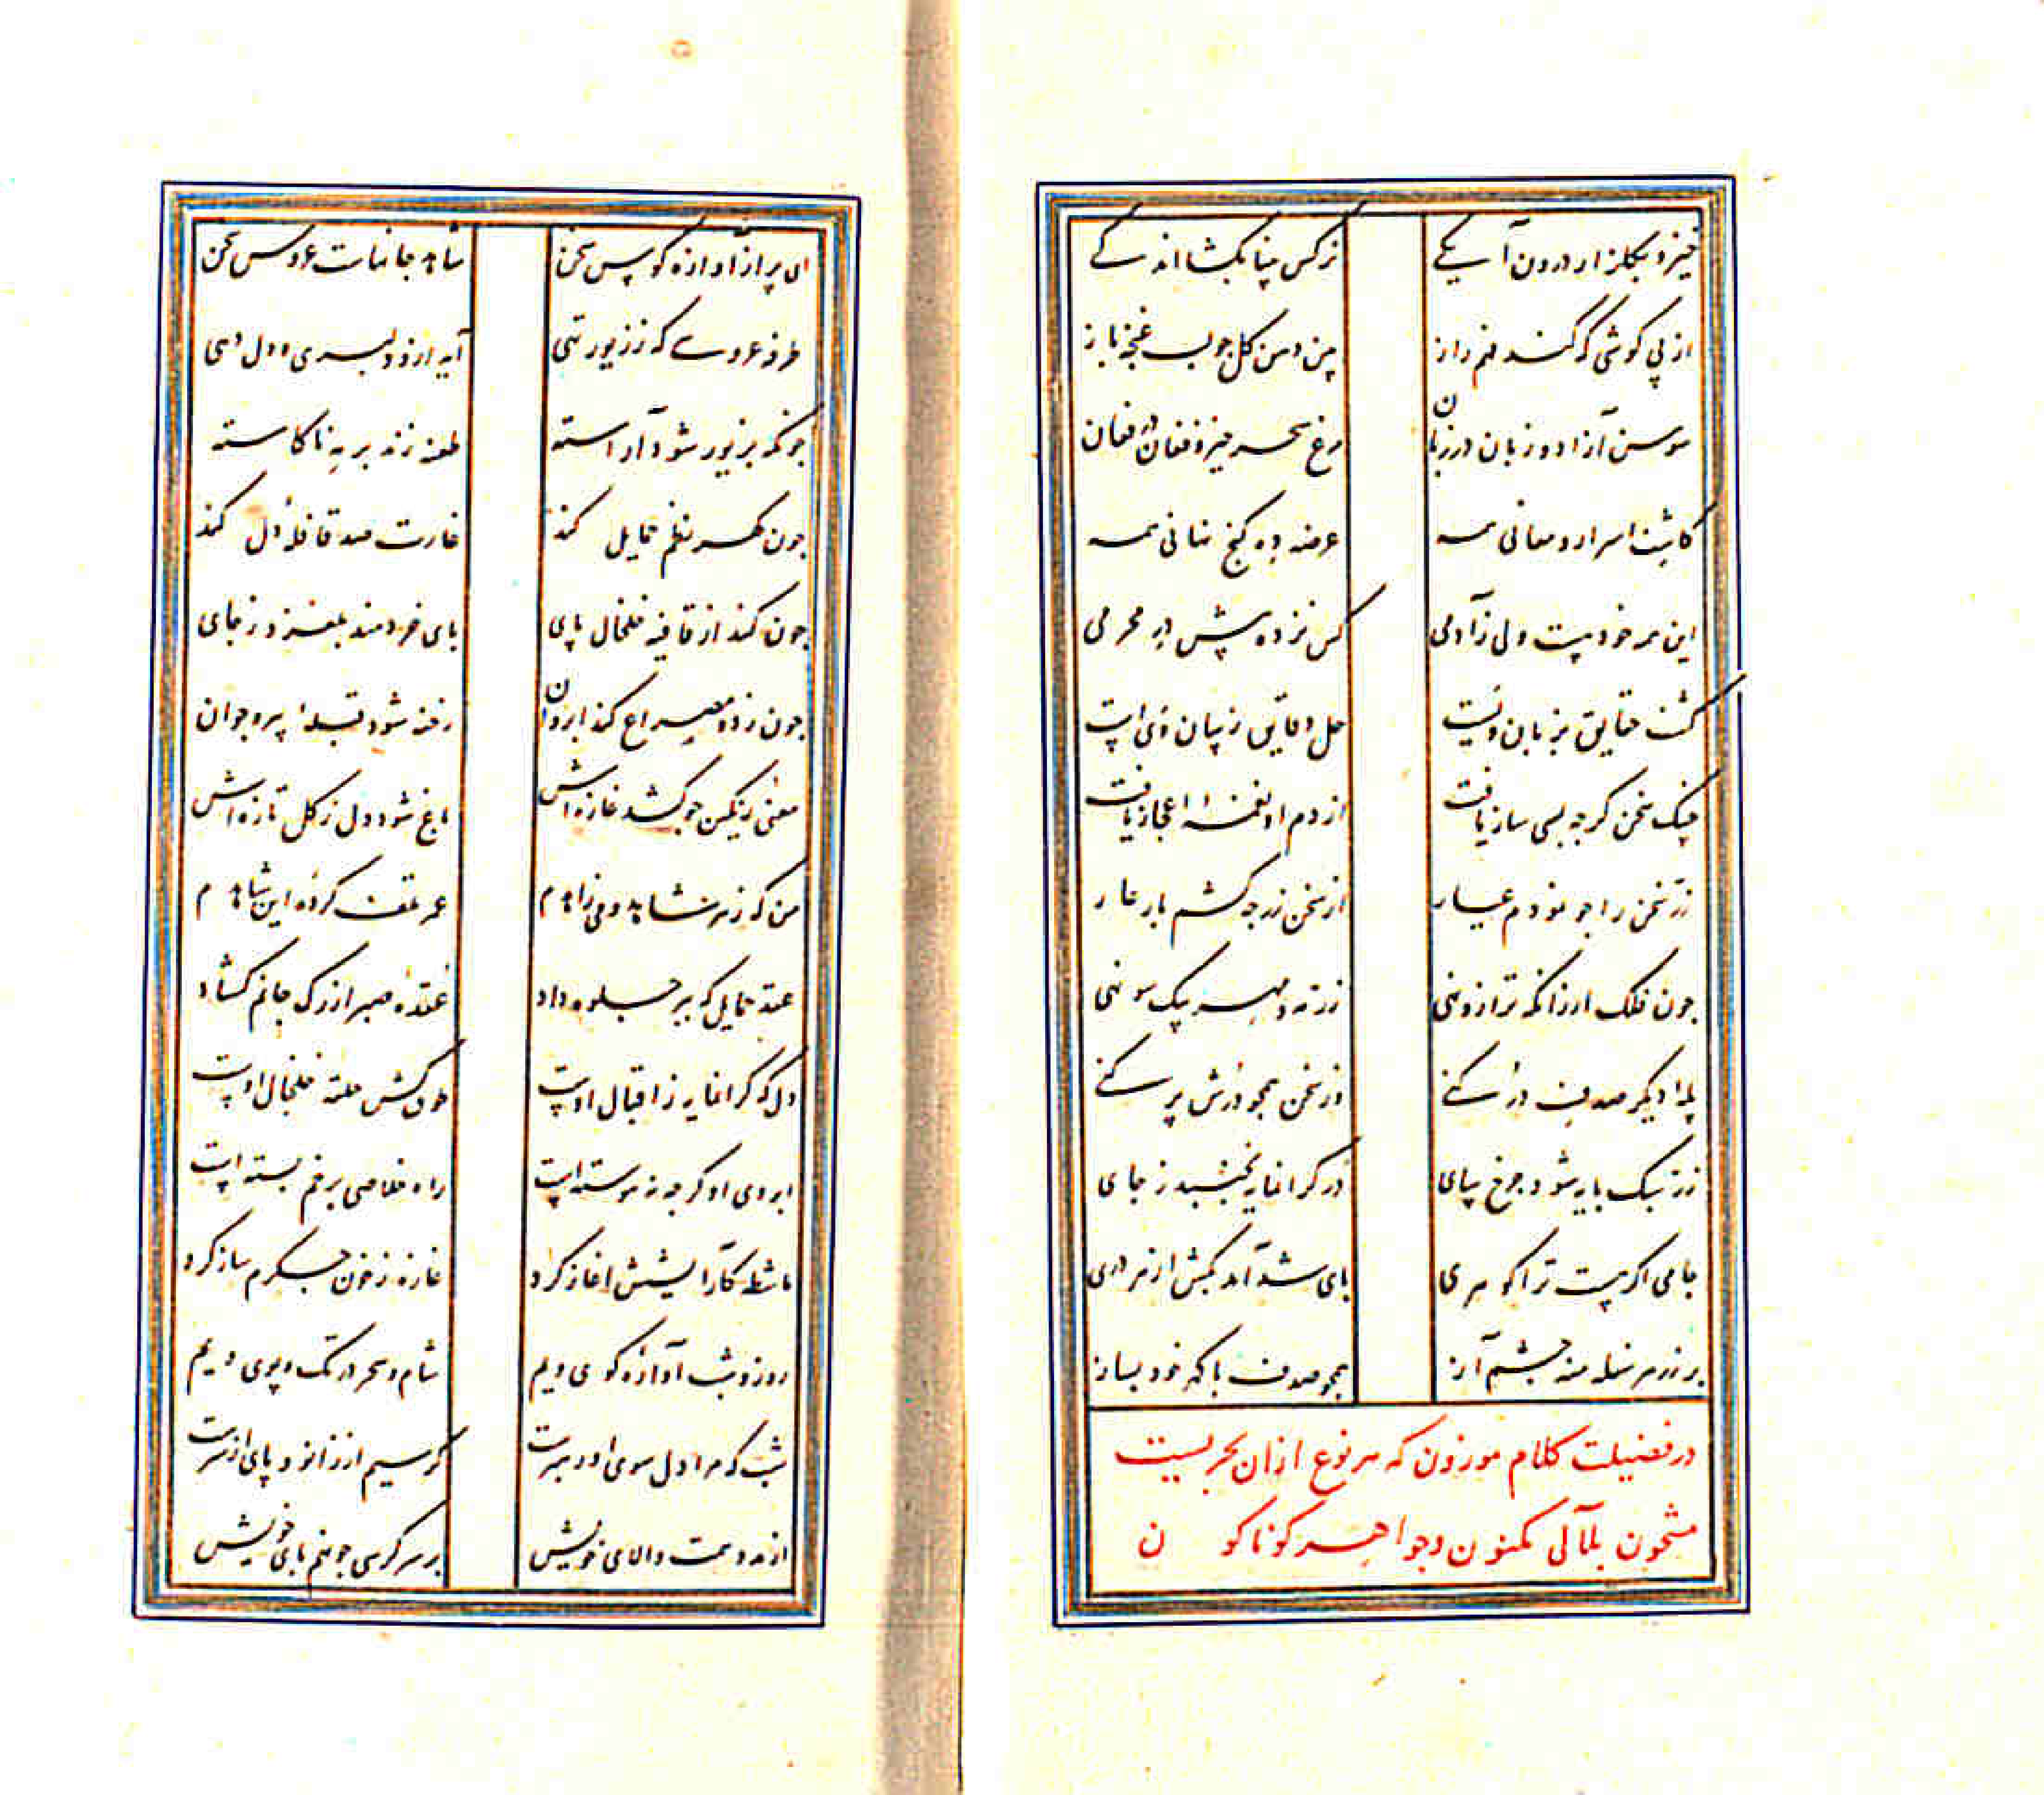 خیز و بکلزار درون آ یکی نرکس بینا بکشا اندکے
از پی کوشی که کند فهم راز بین دهن کل جو لب غنجه باز
سوسن آزاد و زبان در زبان مرغ سحر خیز و فغان در فغان
کاشف اسرار و معانی همه عرضه ده کنج نهانی همه
این همه خود هست ولی ز آدمی کس نزده پیش در محرمی
کشف حقایق بزبان ویست حل دقایق ز بیان وی است
چنک سخن کرجه بسی ساز یافت از دم او نغمهٔ اعجاز یافت
زر سخن را جو نمودم عیار از سخن زر جه کشم بار عار
جون فلک ار زانکه ترازو نهی زر مه و مهر بیک سو نهی
پلهٔ دیکر صدف در کنے وز سخن همجو درش پر کنے
زر سبک پایه شود جرخ سای در کرانمایه نجنبد ز جای
جامی اکر هست ترا کوهری پای سند آمد بکش از هر دری
بر زر هر سفله منه جشم آز همجو صدف با کهر خود بساز
در فضیلت کلام موزون که هر نوع ازان بحریست
مشحون بلآلی مکنون وجواهر کوناکون
ای پر از آوازهٔ کوس سخن شاهد جانهاست عروس سخن
طرفه عروسے که ز زیور تهی آید ازو دلبری و دل دهی
جونکه بزیور شود آراسته طعنه زند بر مه ناکاسته
جون کهر نظم حمایل کند غارت صد قافلهٔ دل کند
جون کند از قافیه خلخال پای پای خردمند بلغزد ز جای
جون ز دو مصراع کند ابروان رخنه شود قبلهٔ پیر و جوان
معنی رنکین جو کشد غازه‌اش باغ شود دل ز کل تازه‌اش
من که ز هر شاهد و می زاهدم عمر تلف کردهٔ این شاهدم
عقد حمایل که ببر جلوه داد عقدهٔ صبر از رک جانم کشاد
دل که کرانمایه ز اقبال اوست طوق کشش حلقهٔ خلخال اوست
ابروی او کرجه نه پیوسته است راه خلاصی برخم بسته است
ماشطه کآرایشش اغاز کرد غازه ز خون جکرم ساز کرد
روز و شب آوازهٔ کوی ویم شام و سحر در تک و پوی ویم
شب که مرا دل سوی او رهبرست کرسیم از زانو و پای از سرست
از مدد همت والای خویش بر سر کرسی جو نهم پای خویش